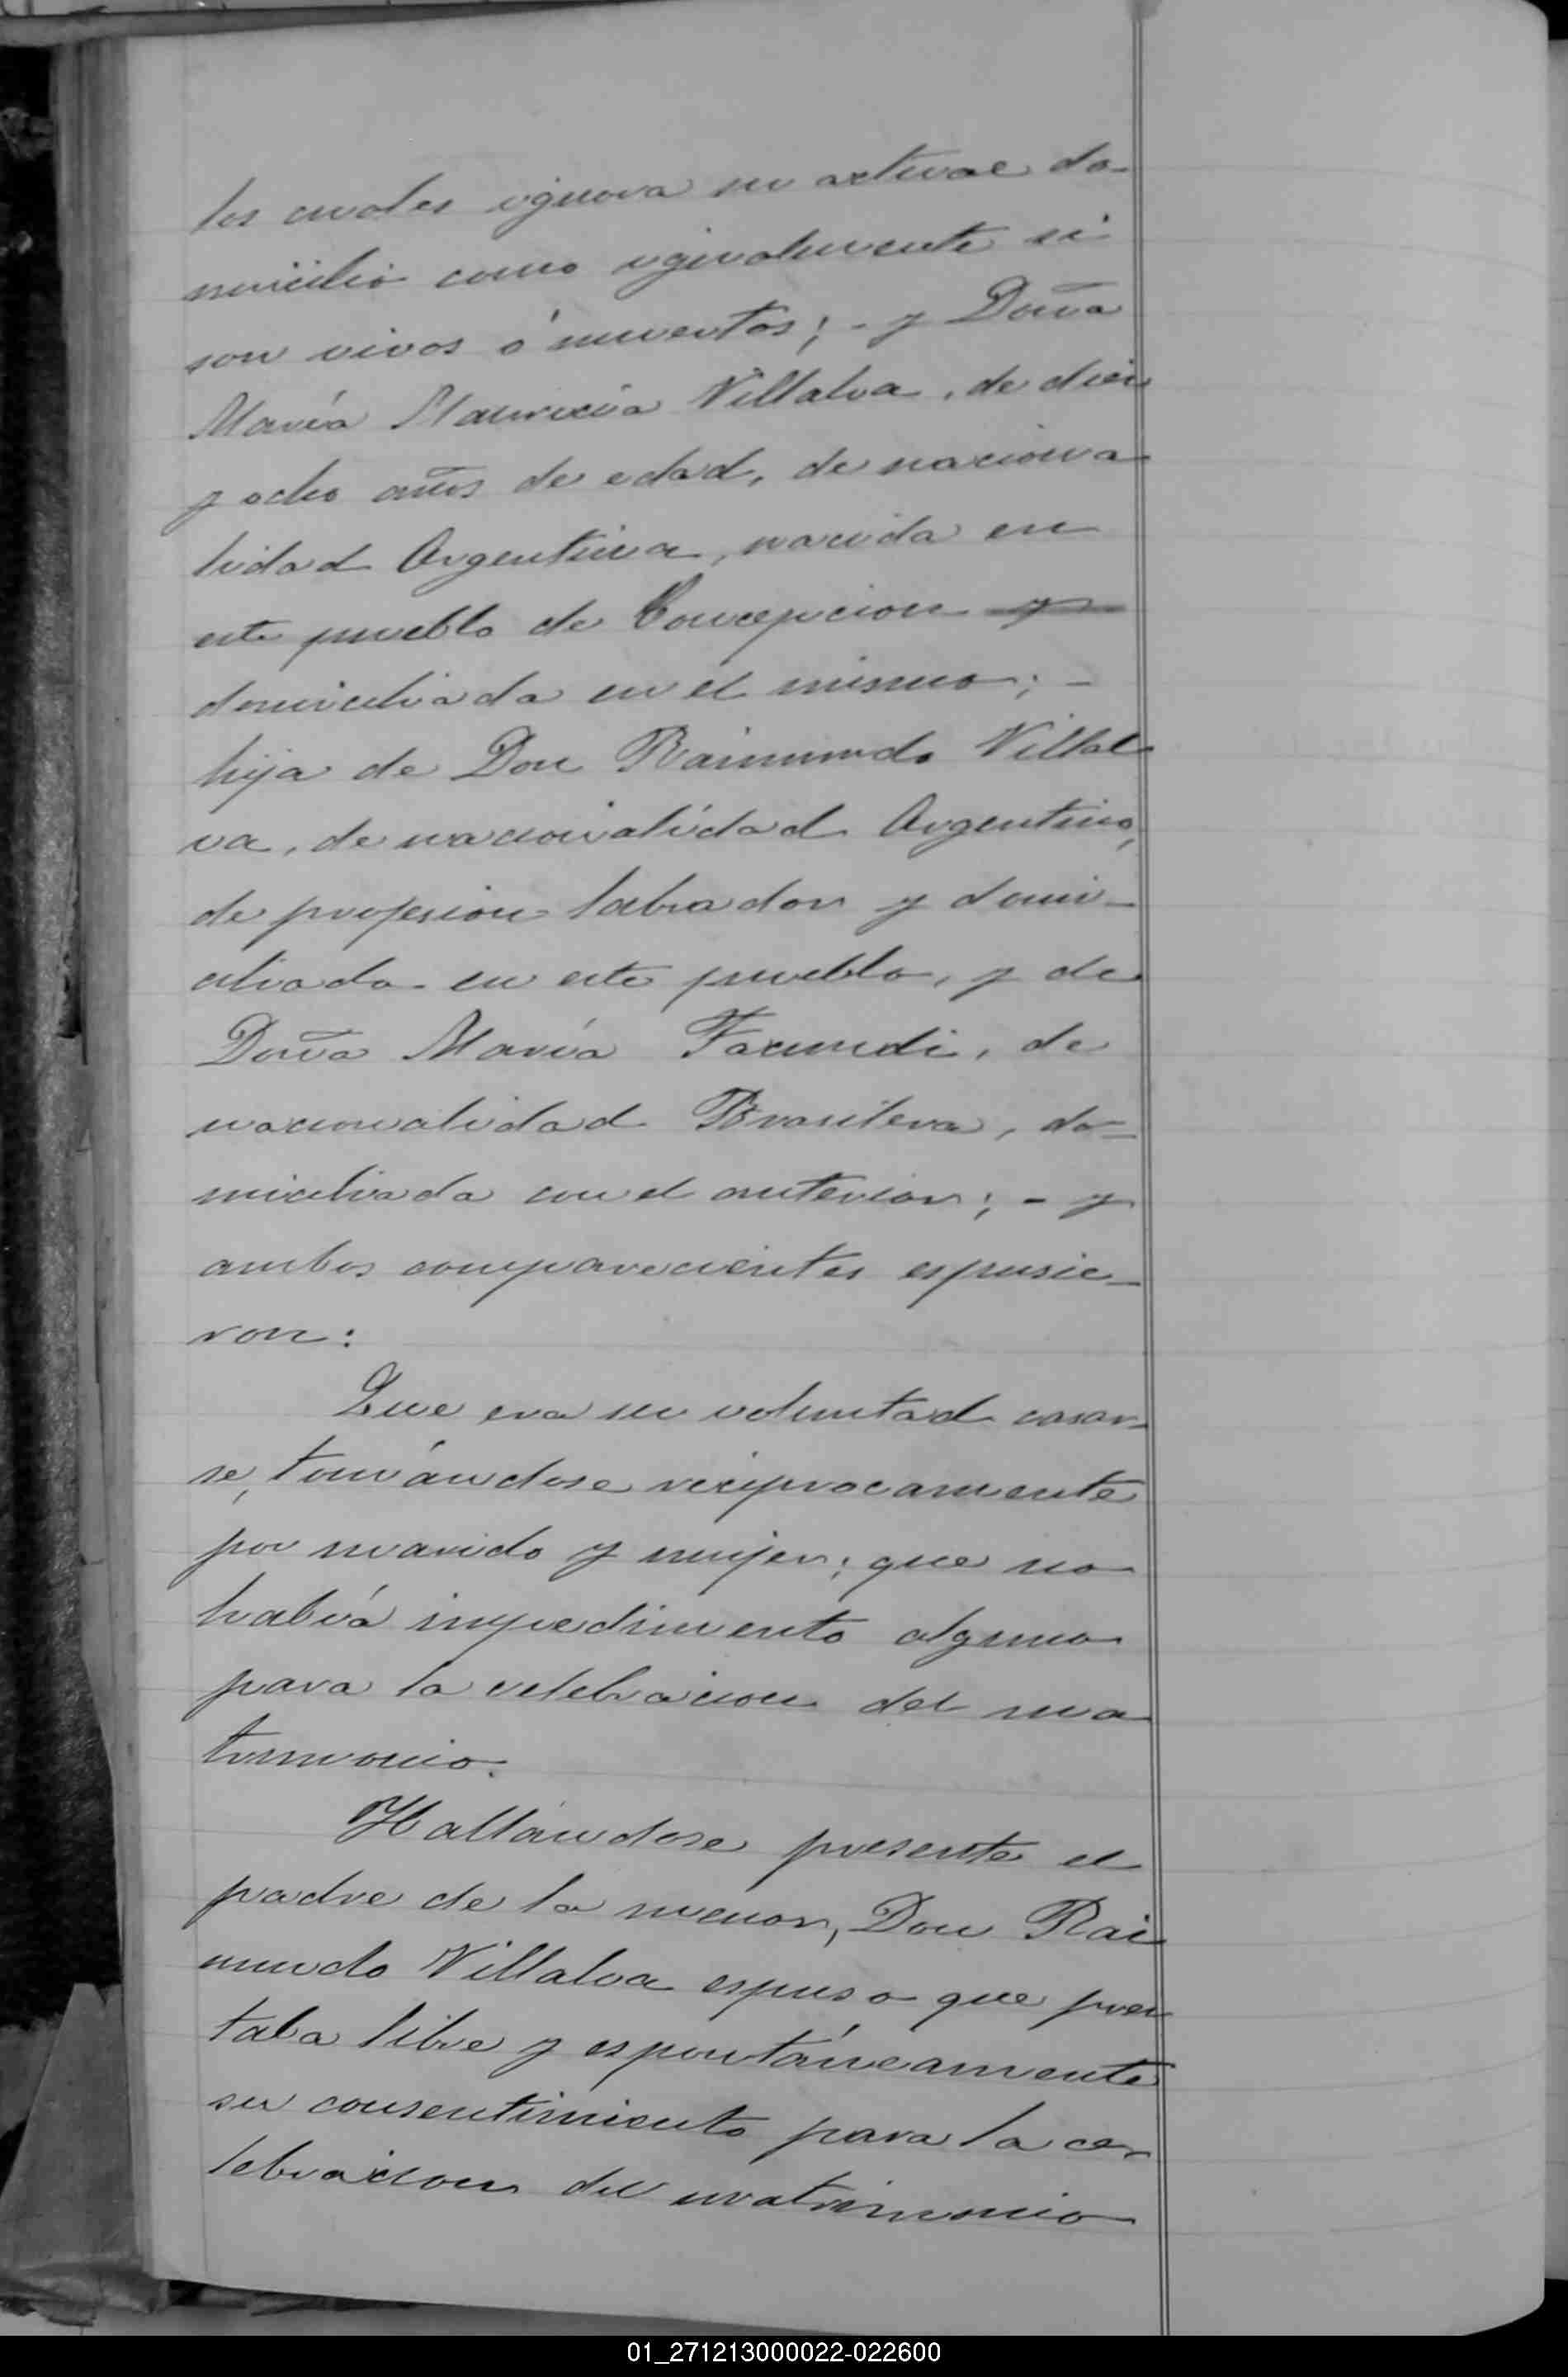 los cuales ignora su actual do-
micilio como igualmente si
son vivos ó muertos; - y Doña
María Mauricia Villalva, de diez
y ocho años de edad, de naciona
lidad Argentina, nacida en
este pueblo de Concepcion y
domiciliada en el mismo; -
hija de Don Raimundo Villal
va, de nacionalidad Argentino,
de profesion labrador y domi-
ciliado en este pueblo, y de
Doña María Facundi, de
nacionalidad Brasilera, do=
miciliada con el anterior; - y
ambos comparecientes espusie-
ron:
Que era su voluntad casar-
se, tomándose reciprocamente
por marido y mujer; que no
había impedimento alguno
para la celebracion del ma
trimonio.
Hallándose presente el
padre de la menor, Don Rai
mundo Villalva espuso que pres
taba libre y espontáneamente
su consentimiento para la ce-
lebracion del matrimonio
01_271213000022-022600